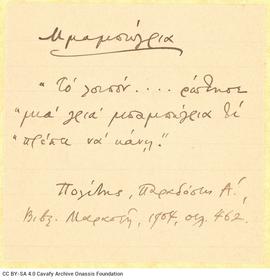 Μπαμπόγρια
"Τό λοιπόν.... ρώτησε
"μιά γριά μπαμπόγρια τί
"πρέπει νά κάνῃ."
Πολίτης, Παραδόσεις Α΄.
Βιβλ. Μαρασλῆ, 1904, σελ. 462.
CC BY-SA 4.0 Cavafy Archive Onassis Foundation